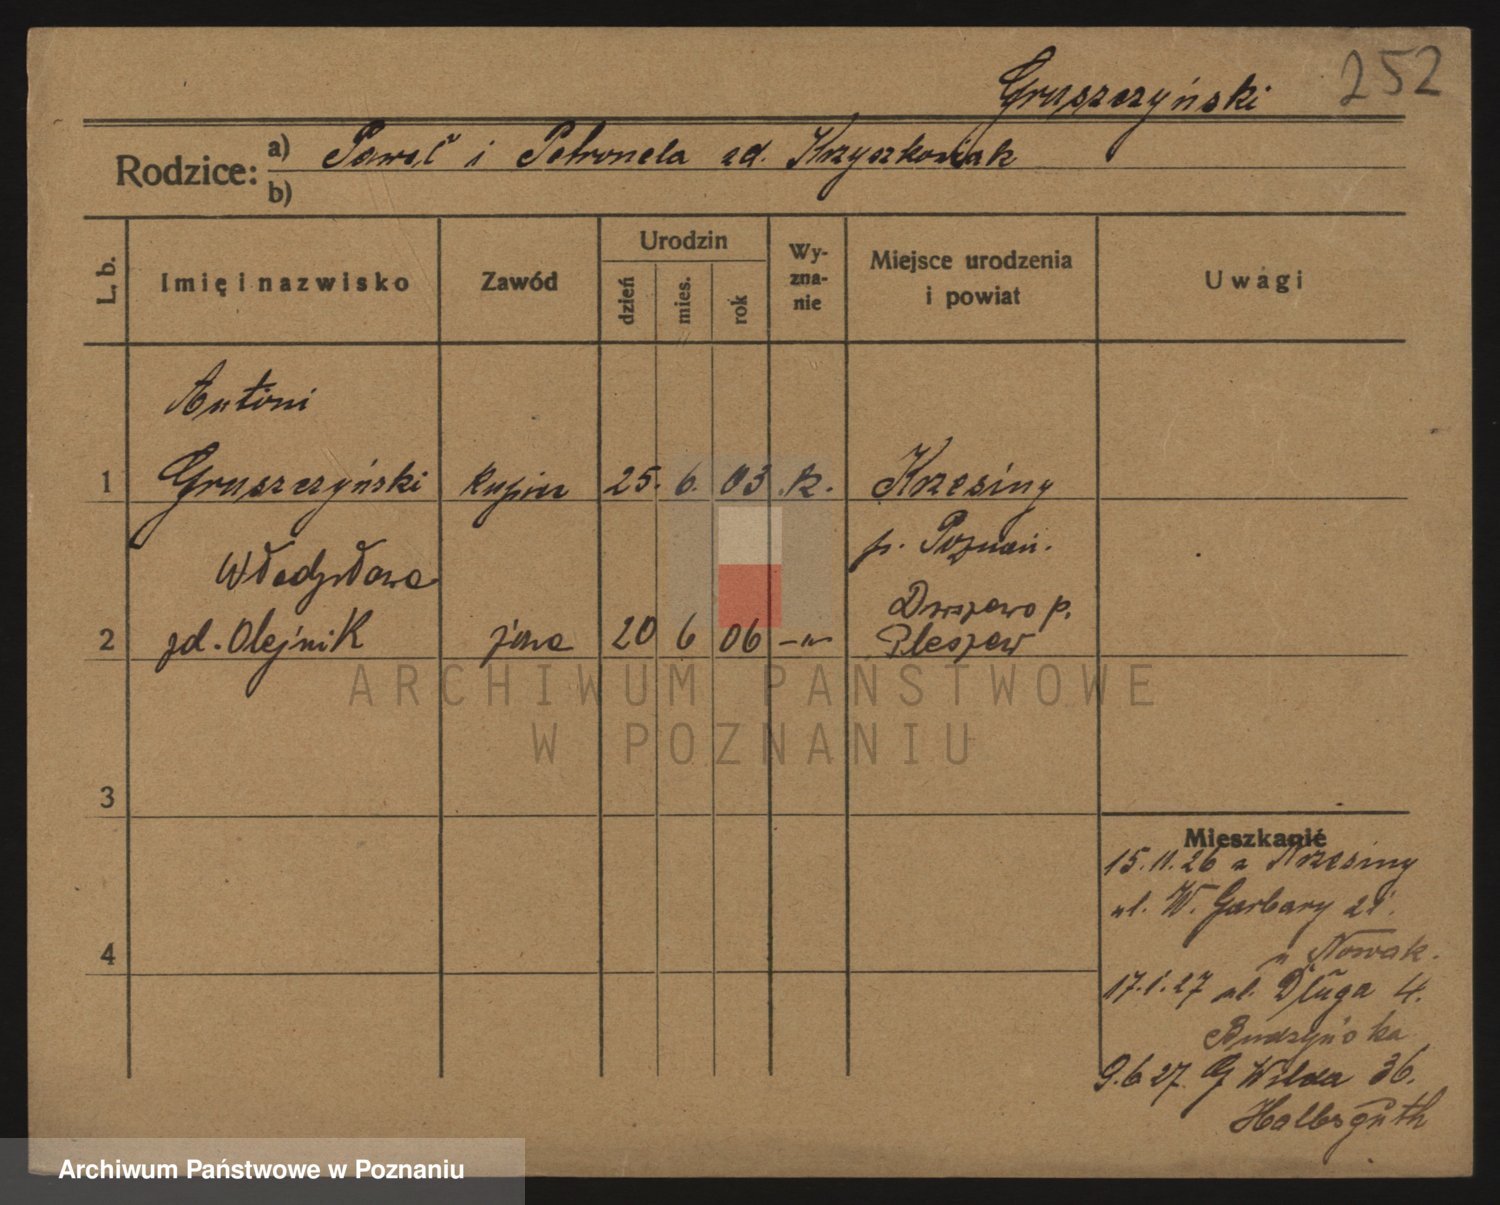 Gruszczyński 252
Rodzice: a) Paweł i Petronela zd. Krzyszkowiak
b)
L. b. Imię i nazwisko Zawód Urodzin dzień mies. rok Wy-zna-nie Miejsce urodzenia i powiat Uwagi
Antoni
1 Gruszczyński kupiec 25. 6. 03 .k. Krzesiny
p. Poznań.
Władysława
2 zd. Olejnik żona 20 6 06 -"- p.
Pleszew
ARCHIWUM PAŃSTWOWE
W POZNANIU
3
Mieszkanie
15.11.26 z Krzesiny
ul. W. Garbary 21.
u Nowak.
4
17.1.27 ul. Długa 4.
Budzyńska
9.6.27. G Wilda 36.
Halbsguth
Archiwum Państwowe w Poznaniu